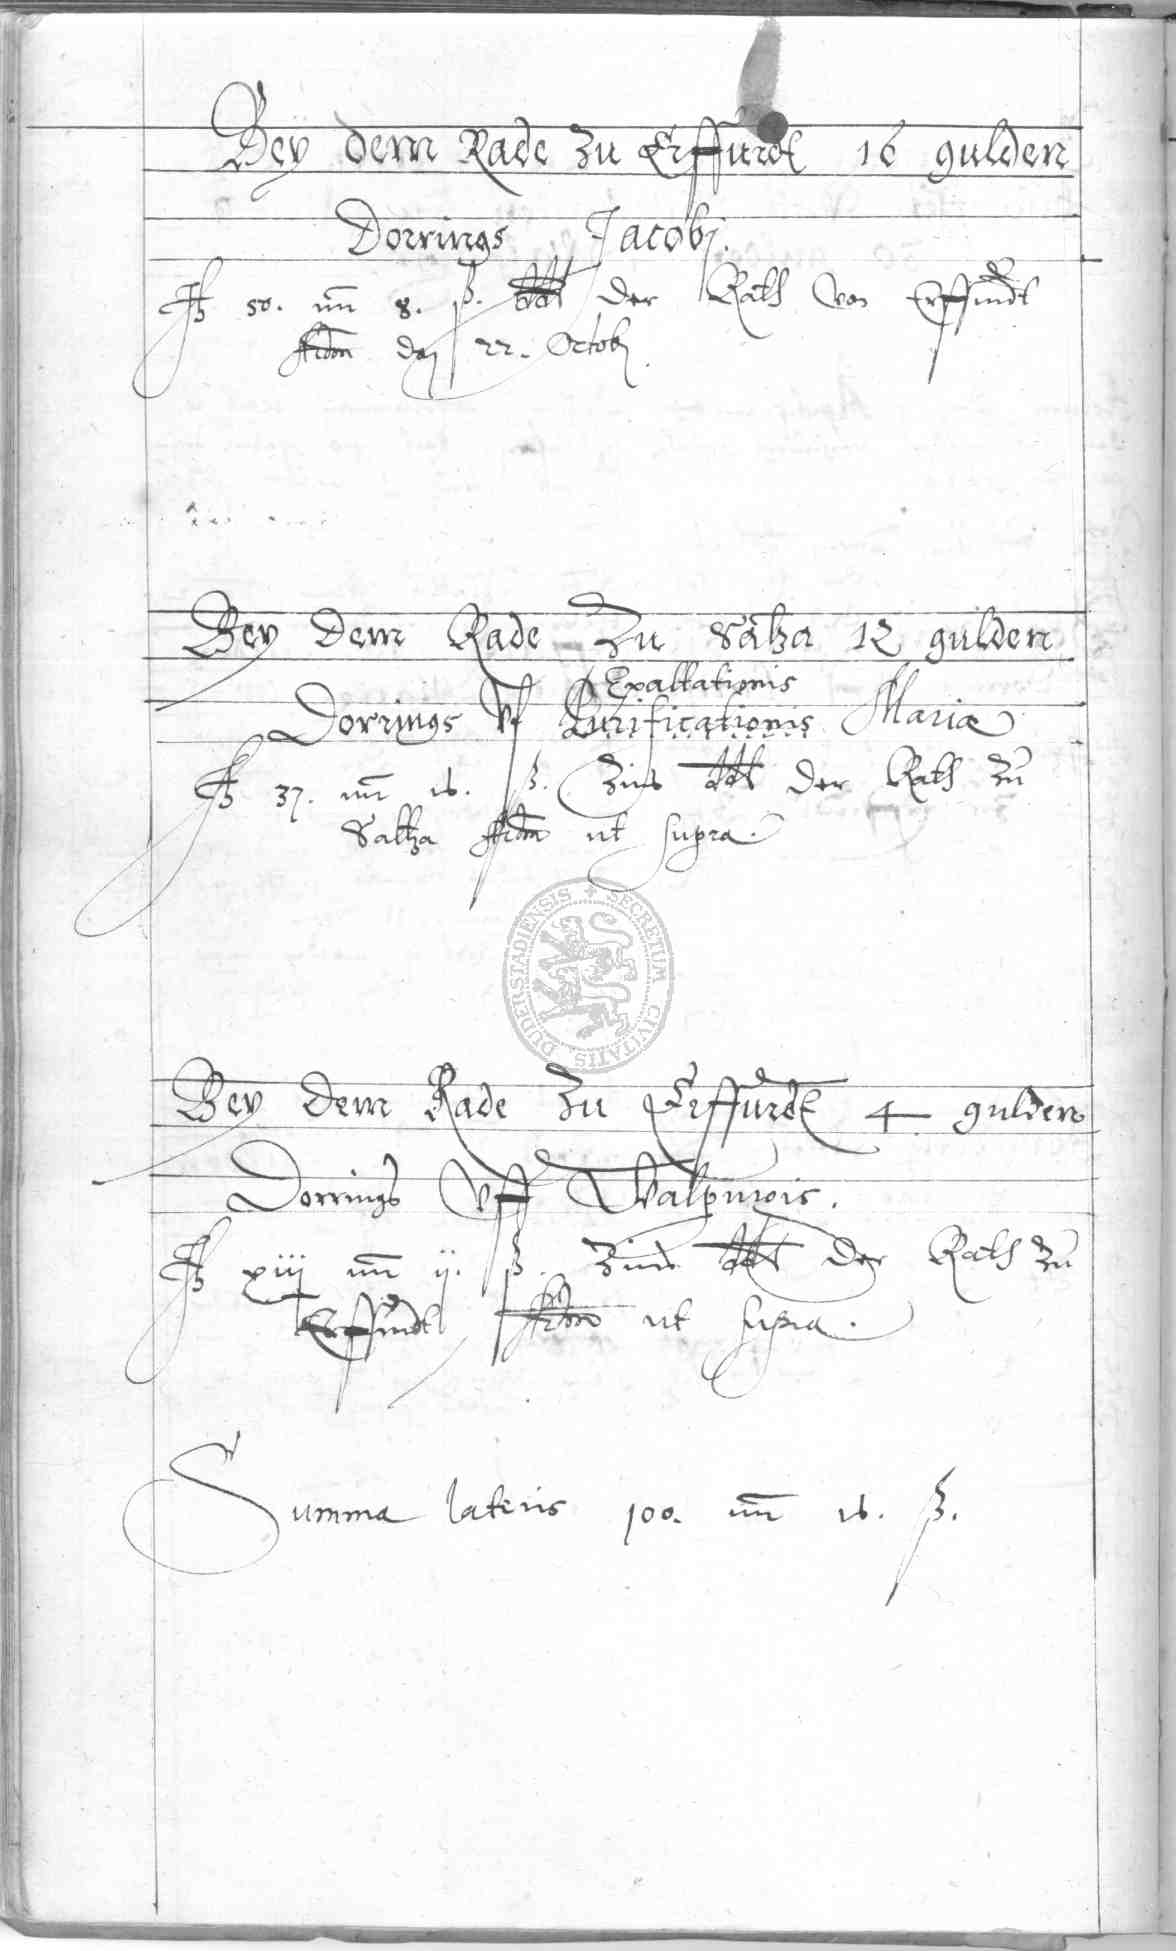 Bey dem Rade zu Erffurdt 16 gulden
Dorrings Jacobj.
50. mr 8. ß. der Rath von Erffurdt
22. Octobr
Bey dem Rade zu Saltza 12 gulden
Exaltationis
Dorrings Vf Purificationis Mariæ
37. mr 16. ß. Zins der Rath zu
Saltza ut supra.
SECRETUM CIVITATIS DUDERSTADIENSIS
Bey dem Rade zu Erffurdt 4 gulden
Dorrings Vff Walpurgis.
xiij mr ij. ß. Zins der Rath zu
Erffurdt ut supra.
Summa lateris 100. mr 16. ß.